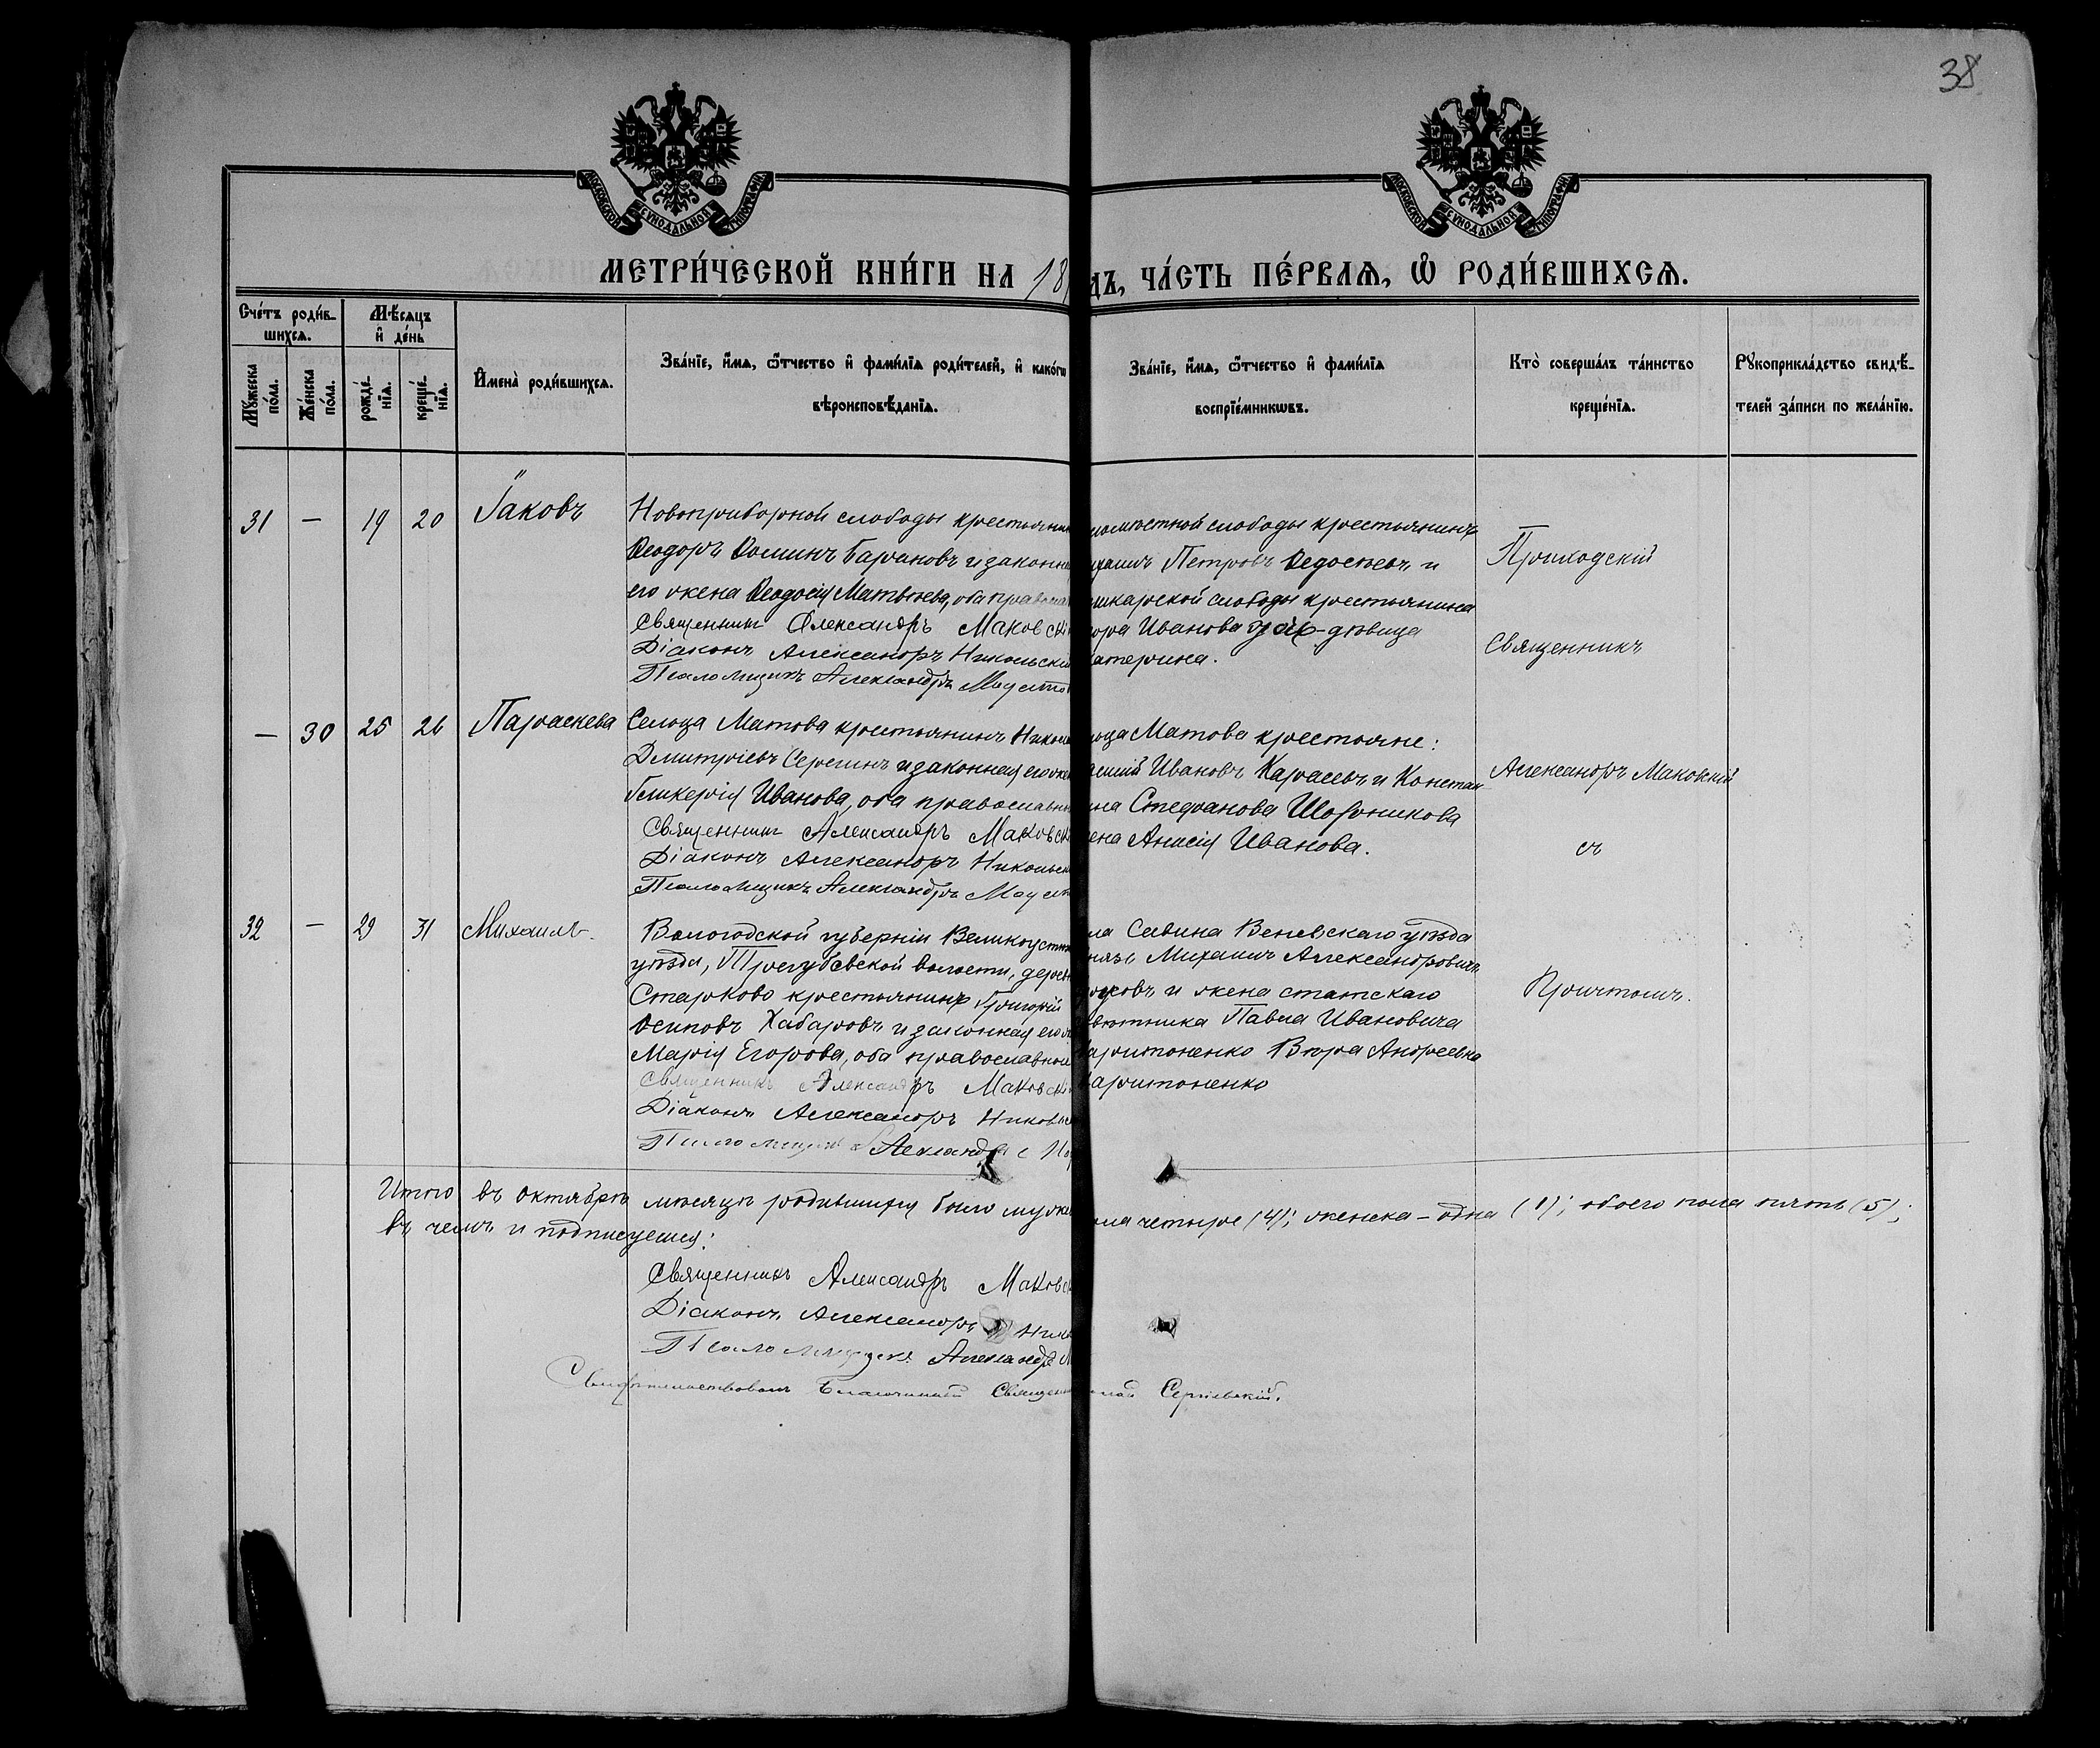 38
МОСКОВСКОЙ СУНОДАЛЬНОЙ ТИПОГРАФІИ
МОСКОВСКОЙ СУНОДАЛЬНОЙ ТИПОГРАФІИ
МЕТРИ́ЧЕСКОЙ КНИ́ГИ НА 18
ДЪ, ЧА́СТЬ ПЕ́РВАѦ, Ѡ҆ РОДИ́ВШИХСѦ.
Сче́тъ роди́в-
шихсѧ.
Мѣ́сѧцъ
и҆ де́нь
Мꙋ́жеска
по́ла.
Же́нска
по́ла.
рожде́-
нїѧ.
креще́-
нїѧ.
И҆мена̀ роди́вшихсѧ.
Зва́нїе, и҆́мѧ, ѻ҆́тчество и҆ фами́лїѧ роди́телей, и҆ како́гѡ
вѣроисповѣ́данїѧ.
Зва́нїе, и҆́мѧ, ѻ҆́тчество и҆ фами́лїѧ
воспрїе́мникѡвъ.
Кто̀ соверша́лъ та́инство
креще́нїѧ.
Рꙋкоприкла́дство свидѣ́-
телей за́писи по жела́нїю.
31 — 19 20 Іаковъ
Новоприборной слободы крестьянин
Ѳеодоръ Ѳоминъ Барановъ и законн
его жена Ѳеодосія Матвѣева, оба правосла
Священникъ Александръ Маковскі
Діаконъ Александръ Никольскій
Псаломщикъ Александръ
помѣстной слободы крестьянинъ
Петровъ Ѳедосѣевъ и
шкарской слободы крестьянина
Иванова дочь-дѣвица
катерина.
Приходскій
Священникъ
— 30 25 26 Параскева
Сельца Матова крестьянинъ Никол
Дмитріевъ Серегинъ и законная его же
Гликерія Иванова, оба православн
Священникъ Александръ Маковск
Діаконъ Александръ Никольск
Псаломщикъ Александръ
ьца Матова крестьяне:
Ивановъ Карасевъ и Констан
ина Стефанова Шорникова
ена Анисія Иванова.
Александръ Маковскій
съ
32 — 29 31 Михаилъ.
Вологодской губерніи Великоустю
уѣзда, волости, дерев
Старково крестьянинъ Григорій
Осиповъ Хабаровъ и законная его
Марія Егорова, оба православной
Священникъ Александръ Маковскі
Діаконъ Александръ Николь
Псаломщикъ Александръ
ла Савина Веневскаго уѣзда
нязь Михаилъ Александровичъ
и жена статскаго
вѣтника Павла Ивановича
аритоненко Вѣра Андреевна
аритоненко
Причтомъ.
Итого въ октябрѣ мѣсяцѣ родившихся было муже
ола четыре (4); женска – одна (1); обоего пола пять (5);
въ чемъ и подписуемся:
Священникъ Александръ Маковск
Діаконъ Александръ Нико
Псаломщикъ Александръ
Свидѣтельствовалъ Благочинный Священ
Сергіевскій.